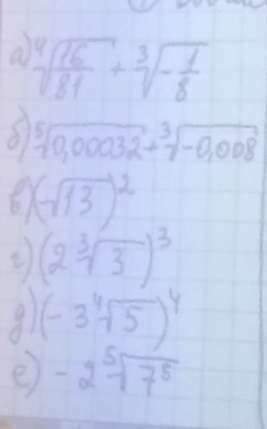 а) ⁴√(16/81) + ³√(-1/8)
б) ⁵√(0,00032) + ³√(-0,008)
в) (-√13)²
г) (2 ³√3)³
д) (-3 ⁴√5)⁴
е) -2 ⁵√(7⁵)